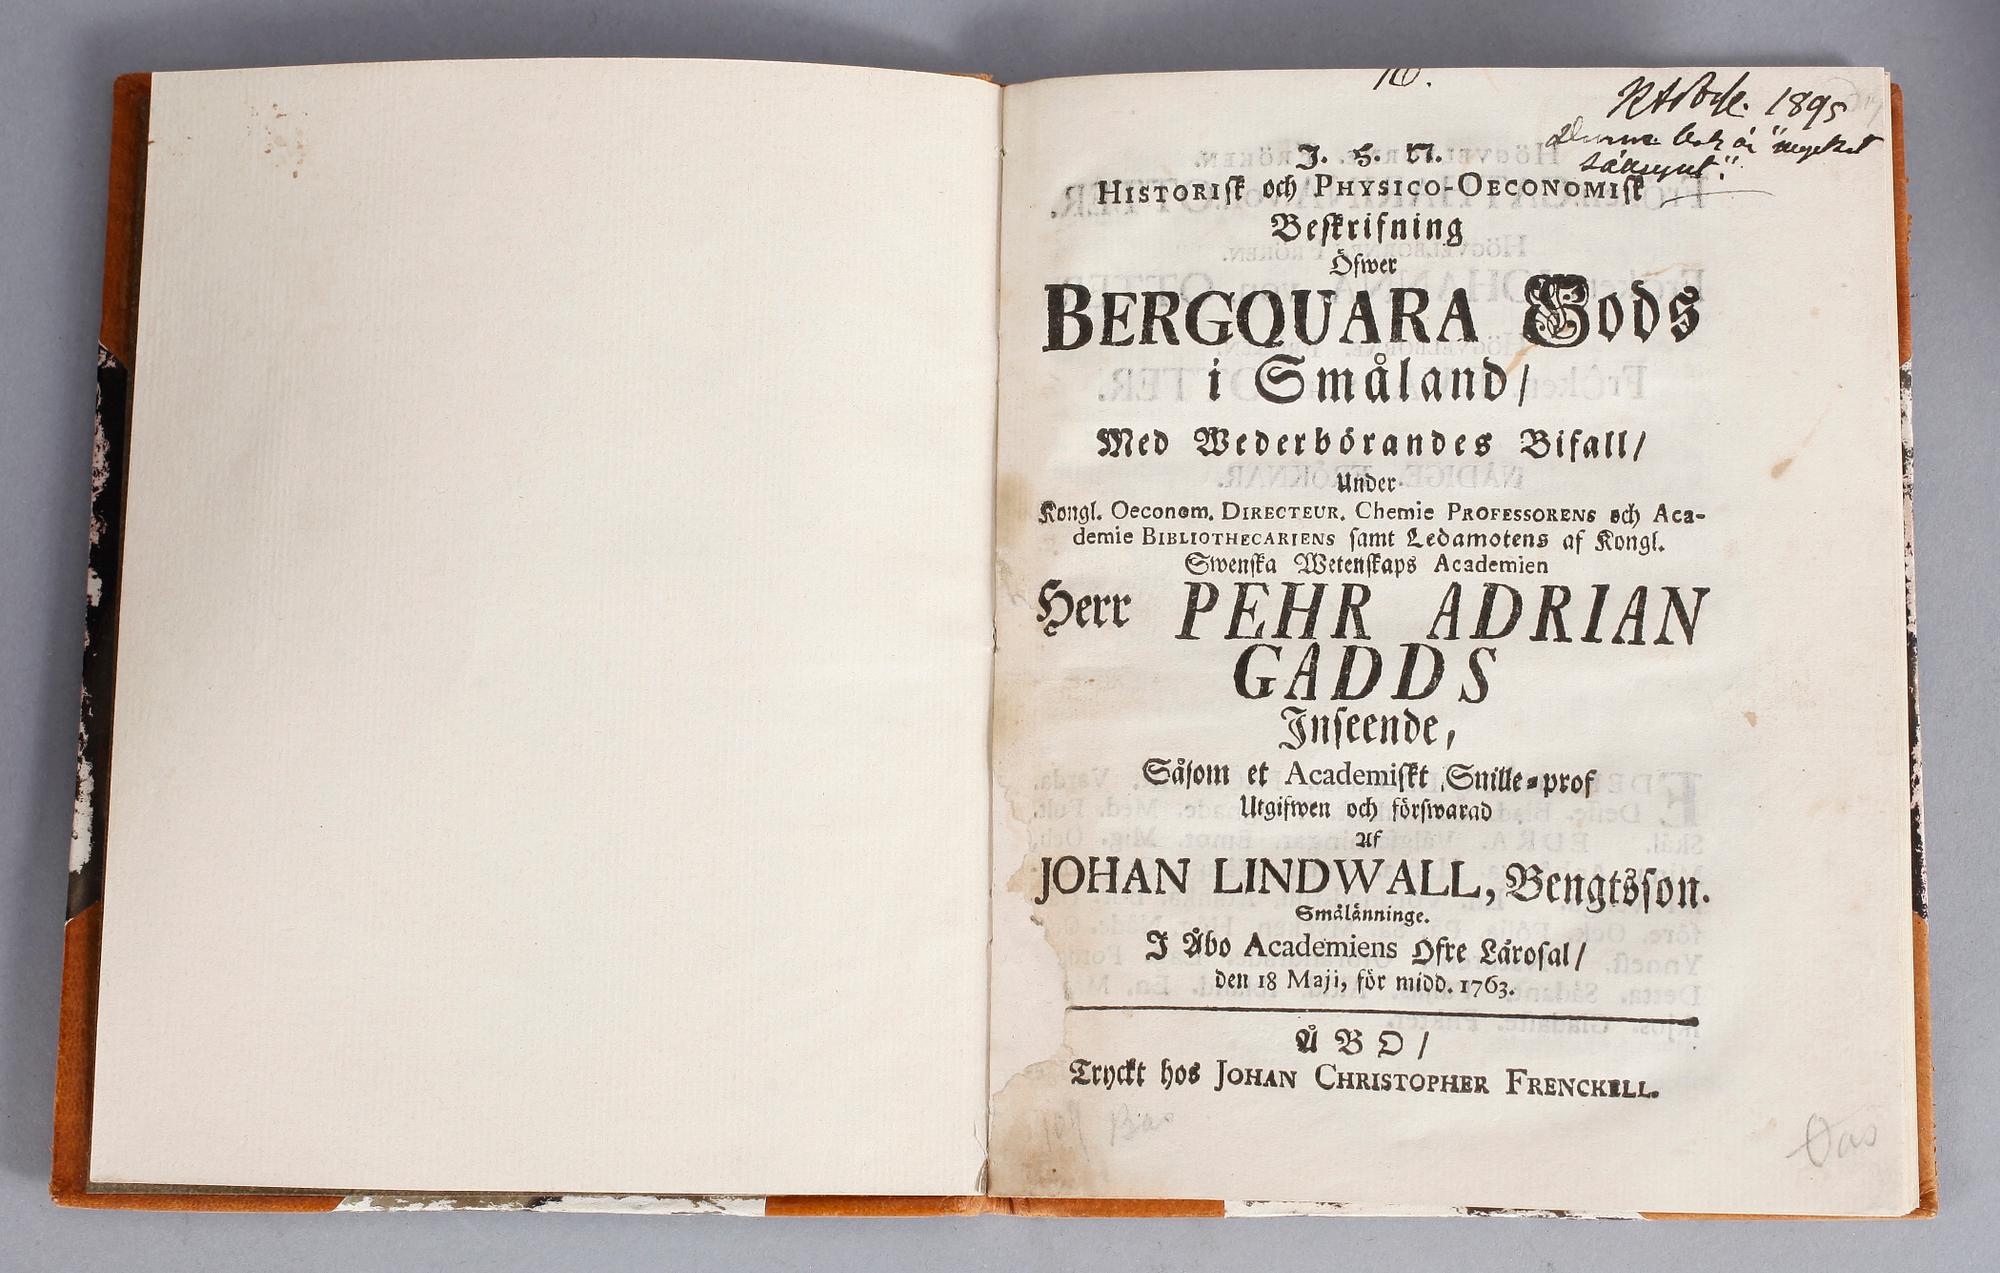 10.
1895
Denna bok är "mycket
sällsynt".
J. H. N.
HISTORIſk och PHYSICO-OECONOMIſk
Beſkrifning
Öfwer
BERGQUARA Gods
i Småland/
Med Wederbörandes Bifall/
Under
Kongl. Oeconom. DIRECTEUR. Chemie PROFESSORENS och Aca-
demie BIBLIOTHECARIENS ſamt Ledamotens af Kongl.
Swenſka Wetenſkaps Academien
Herr PEHR ADRIAN
GADDS
Inſeende,
Såſom et Academiſkt Snille-prof
Utgifwen och förſwarad
Af
JOHAN LINDWALL, Bengtsſon.
Smålänninge.
I Åbo Academiens Öfre Läroſal/
den 18 Maji, för midd. 1763.
ÅBO/
Tryckt hos JOHAN CHRISTOPHER FRENCKELL.